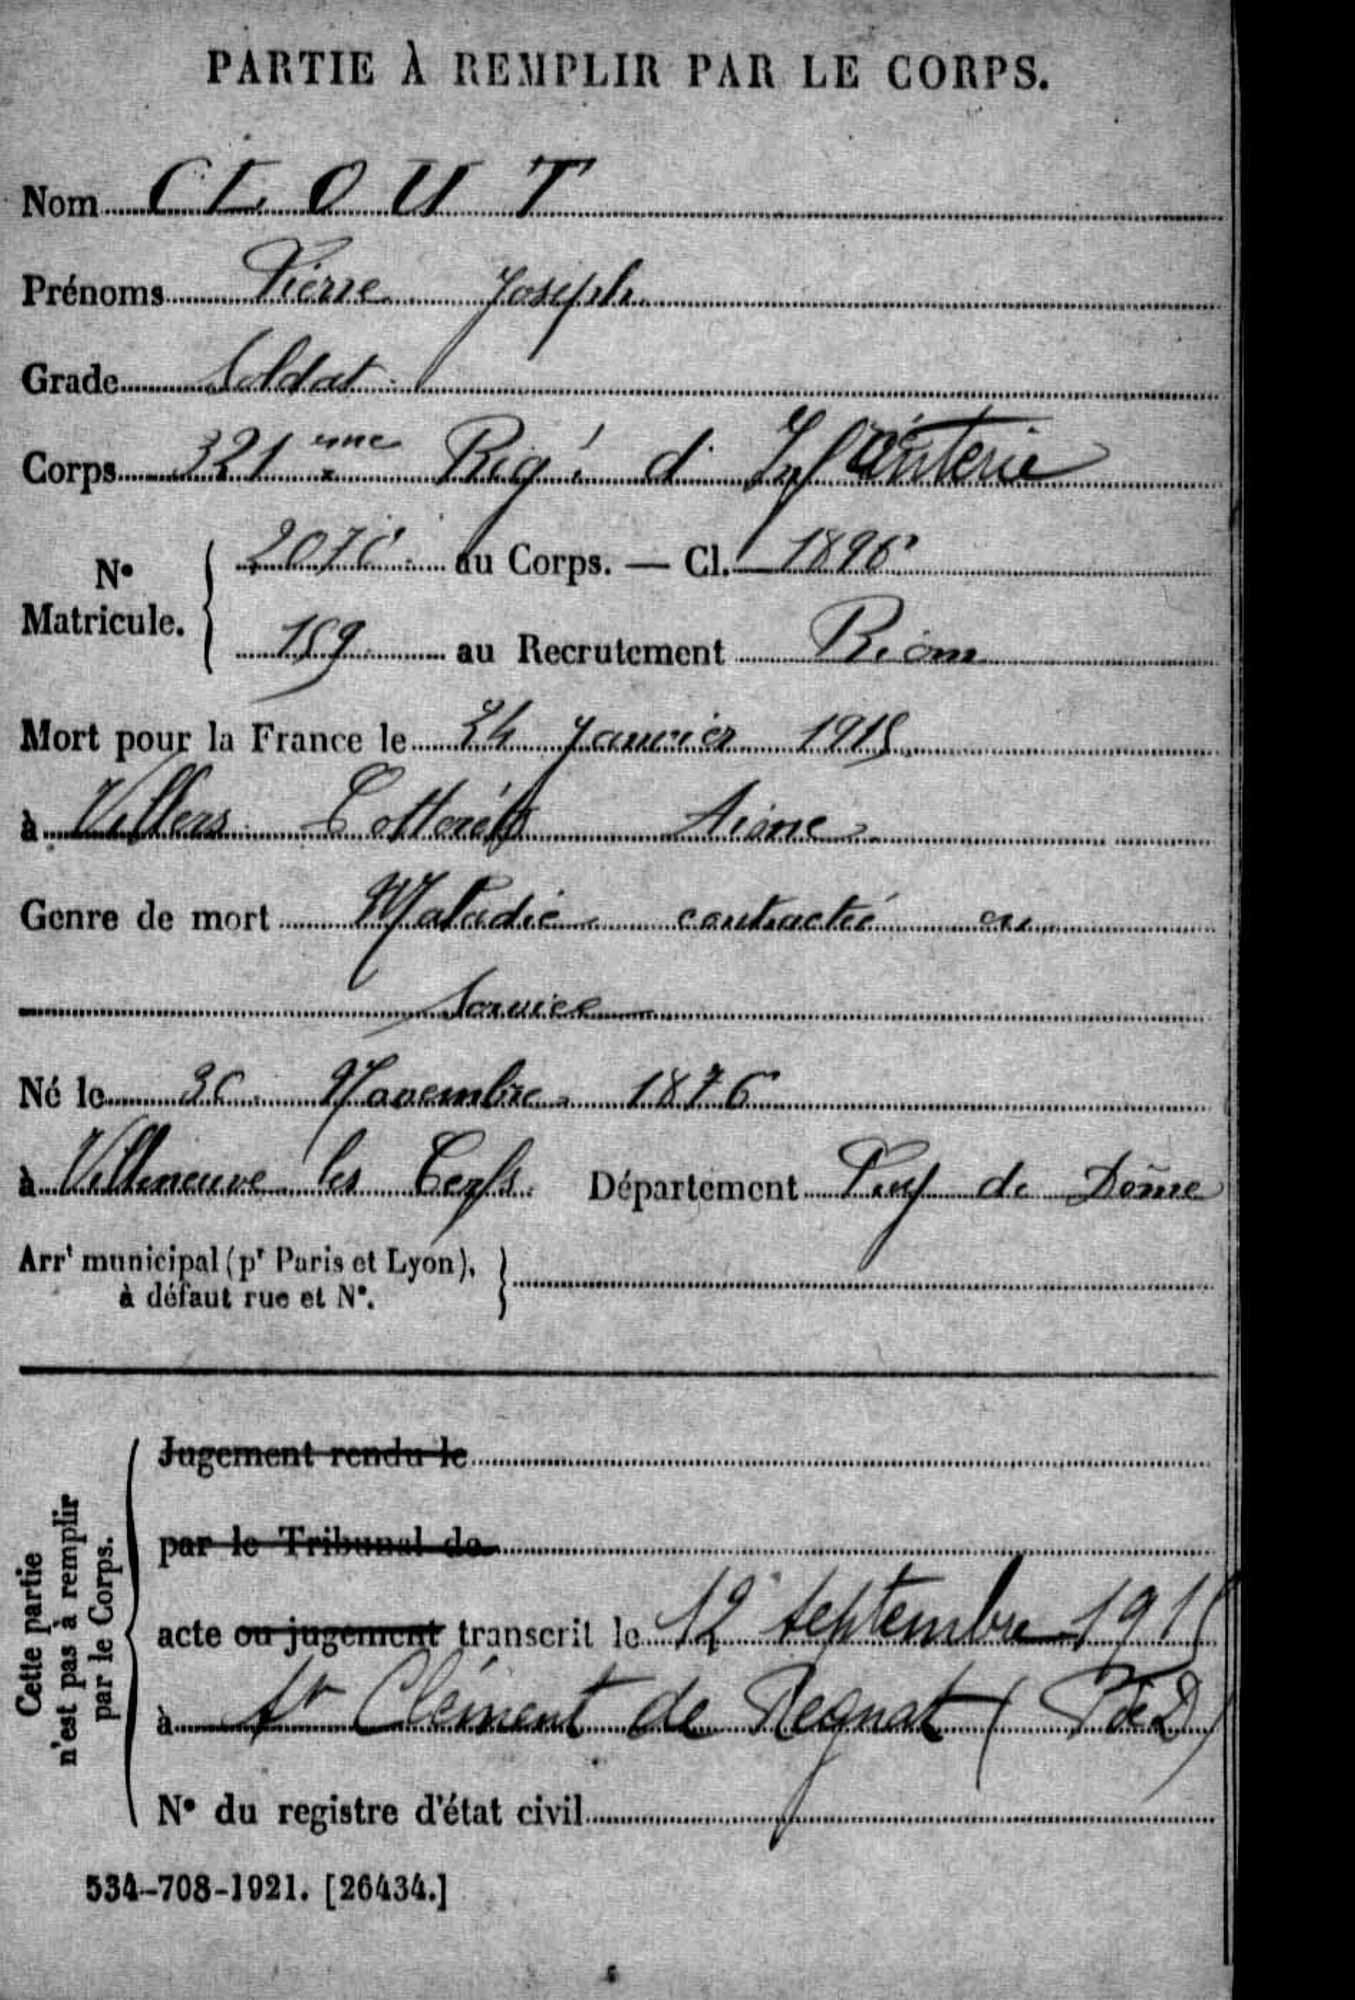 PARTIE À REMPLIR PAR LE CORPS.
Nom CLOUT
Prénoms Pierre Joseph
Grade Soldat
Corps 321 eme Reg. d'Infanterie
N° Matricule. 2070 au Corps. — Cl. 1896
159 au Recrutement Riom
Mort pour la France le 24 Janvier 1915
à Villers Cotterêts Aisne
Genre de mort Maladie contractée en
Service
Né le 30 Novembre 1876
à Villeneuve les Cerfs Département Puy de Dôme
Arrt municipal (pr Paris et Lyon),
à défaut rue et N°.
Cette partie
n'est pas à remplir
par le Corps.
Jugement rendu le
par le Tribunal de
acte ou jugement transcrit le 12 septembre 1915
à St Clément de Regnat (P de D)
N° du registre d'état civil
534-708-1921. [26434.]